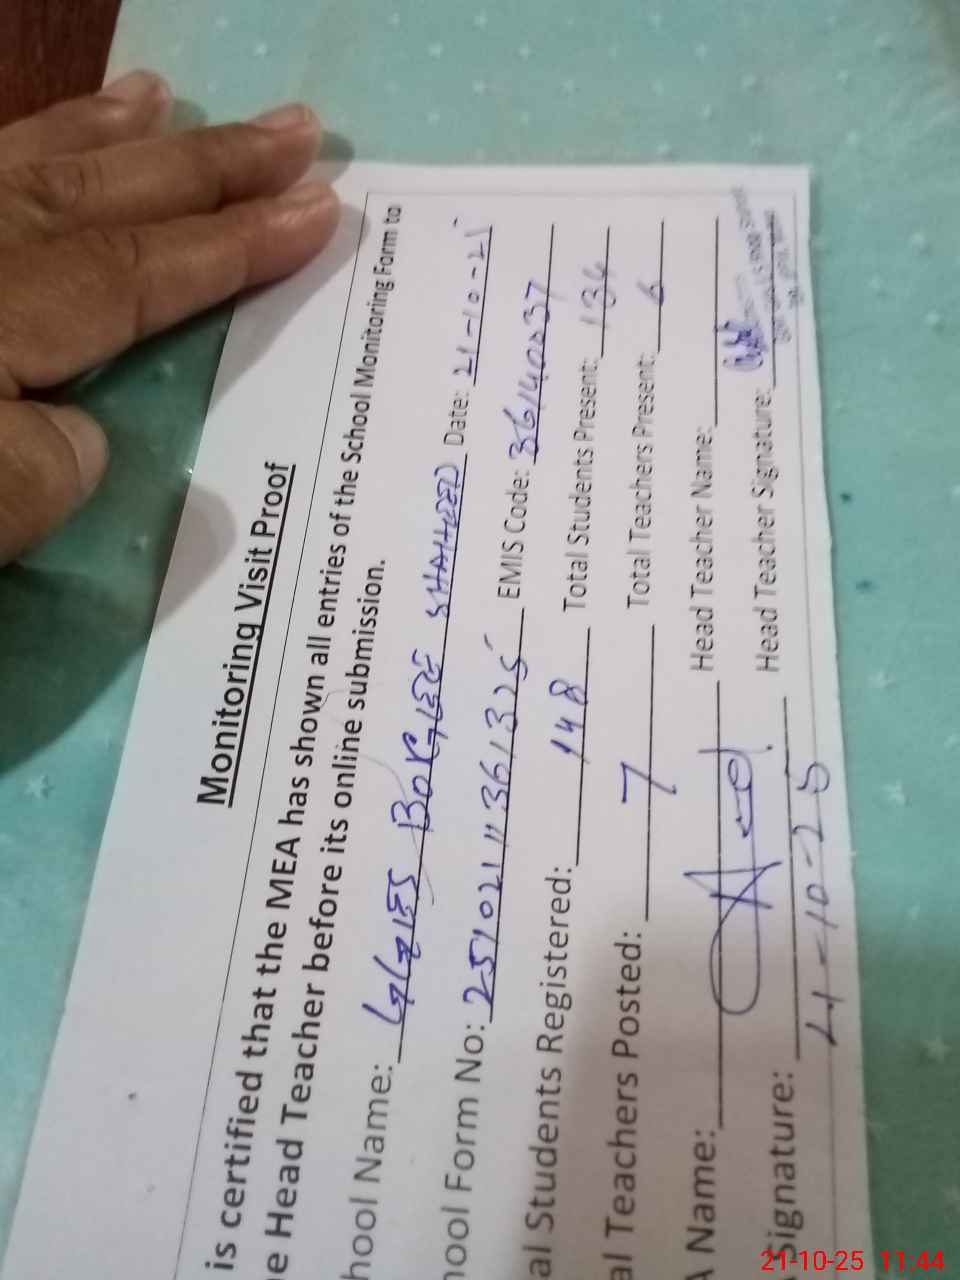 Monitoring Visit Proof
is certified that the MEA has shown all entries of the School Monitoring Form to
e Head Teacher before its online submission.
hool Name: GGHSS SHAHEED Date: 21-10-25
hool Form No: 25102111361325 EMIS Code: 36140037
al Students Registered: 148 Total Students Present: 134
al Teachers Posted: 7 Total Teachers Present: 6
A Name: Head Teacher Name:
Signature: 21-10-25 Head Teacher Signature:
21-10-25 11:44